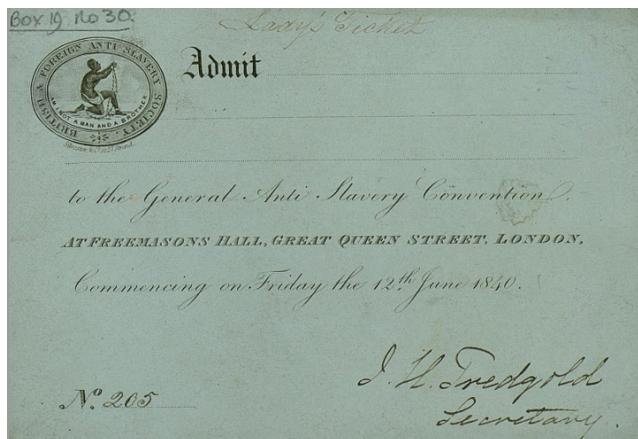 Box 19 No 30.
Lady's Ticket
BRITISH & FOREIGN ANTI-SLAVERY SOCIETY.
AM I NOT A MAN AND A BROTHER
Admit
to the General Anti Slavery Convention.
AT FREEMASONS HALL, GREAT QUEEN STREET, LONDON,
Commencing on Friday the 12th June 1840.
J. H. Tredgold
Secretary.
No. 205